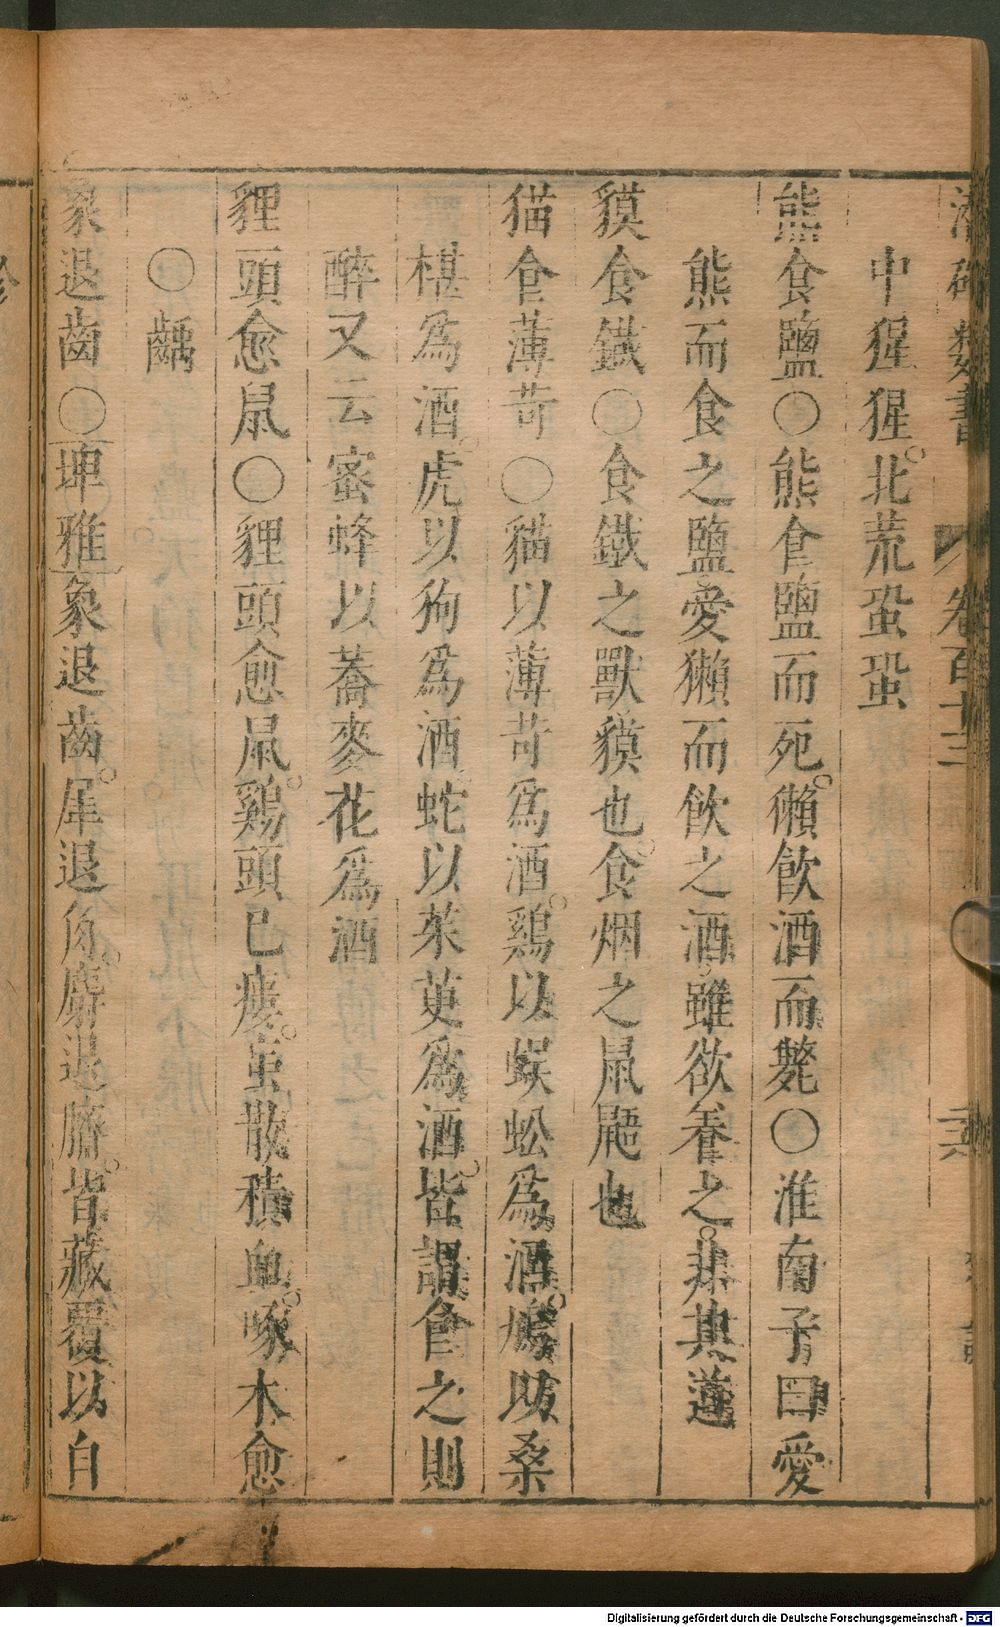 潛確類書　卷百十三　二六
中猩猩北荒蛩蛩
熊食鹽〇熊食鹽而死獺飲酒而斃〇淮南子曰愛
熊而食之鹽愛獺而飲之酒雖欲養之非其道
貘食鐵〇食鐵之獸貘也食烟之鼠𪕮也
猫食薄苛〇貓以薄苛爲酒鷄以蜈蚣爲酒鳩以桑
椹爲酒虎以狗爲酒蛇以茱萸爲酒皆謂食之則
醉又云蜜蜂以蕎麥花爲酒
貍頭愈鼠〇貍頭愈鼠鷄頭已瘻䖟散積血啄木愈
〇齲
象退齒〇埤雅象退齒犀退角麝退臍皆藏覆以自
Digitalisierung gefördert durch die Deutsche Forschungsgemeinschaft - DFG